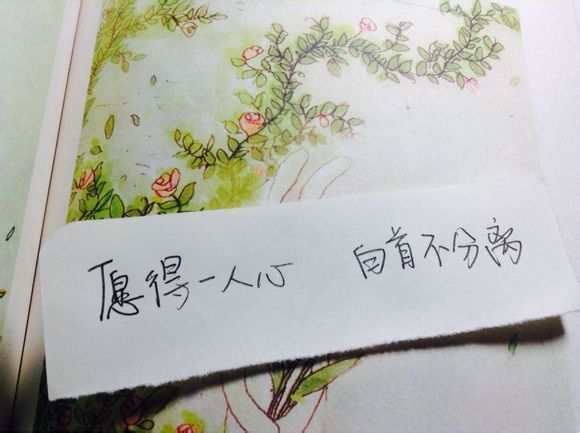 愿得一人心 白首不分离